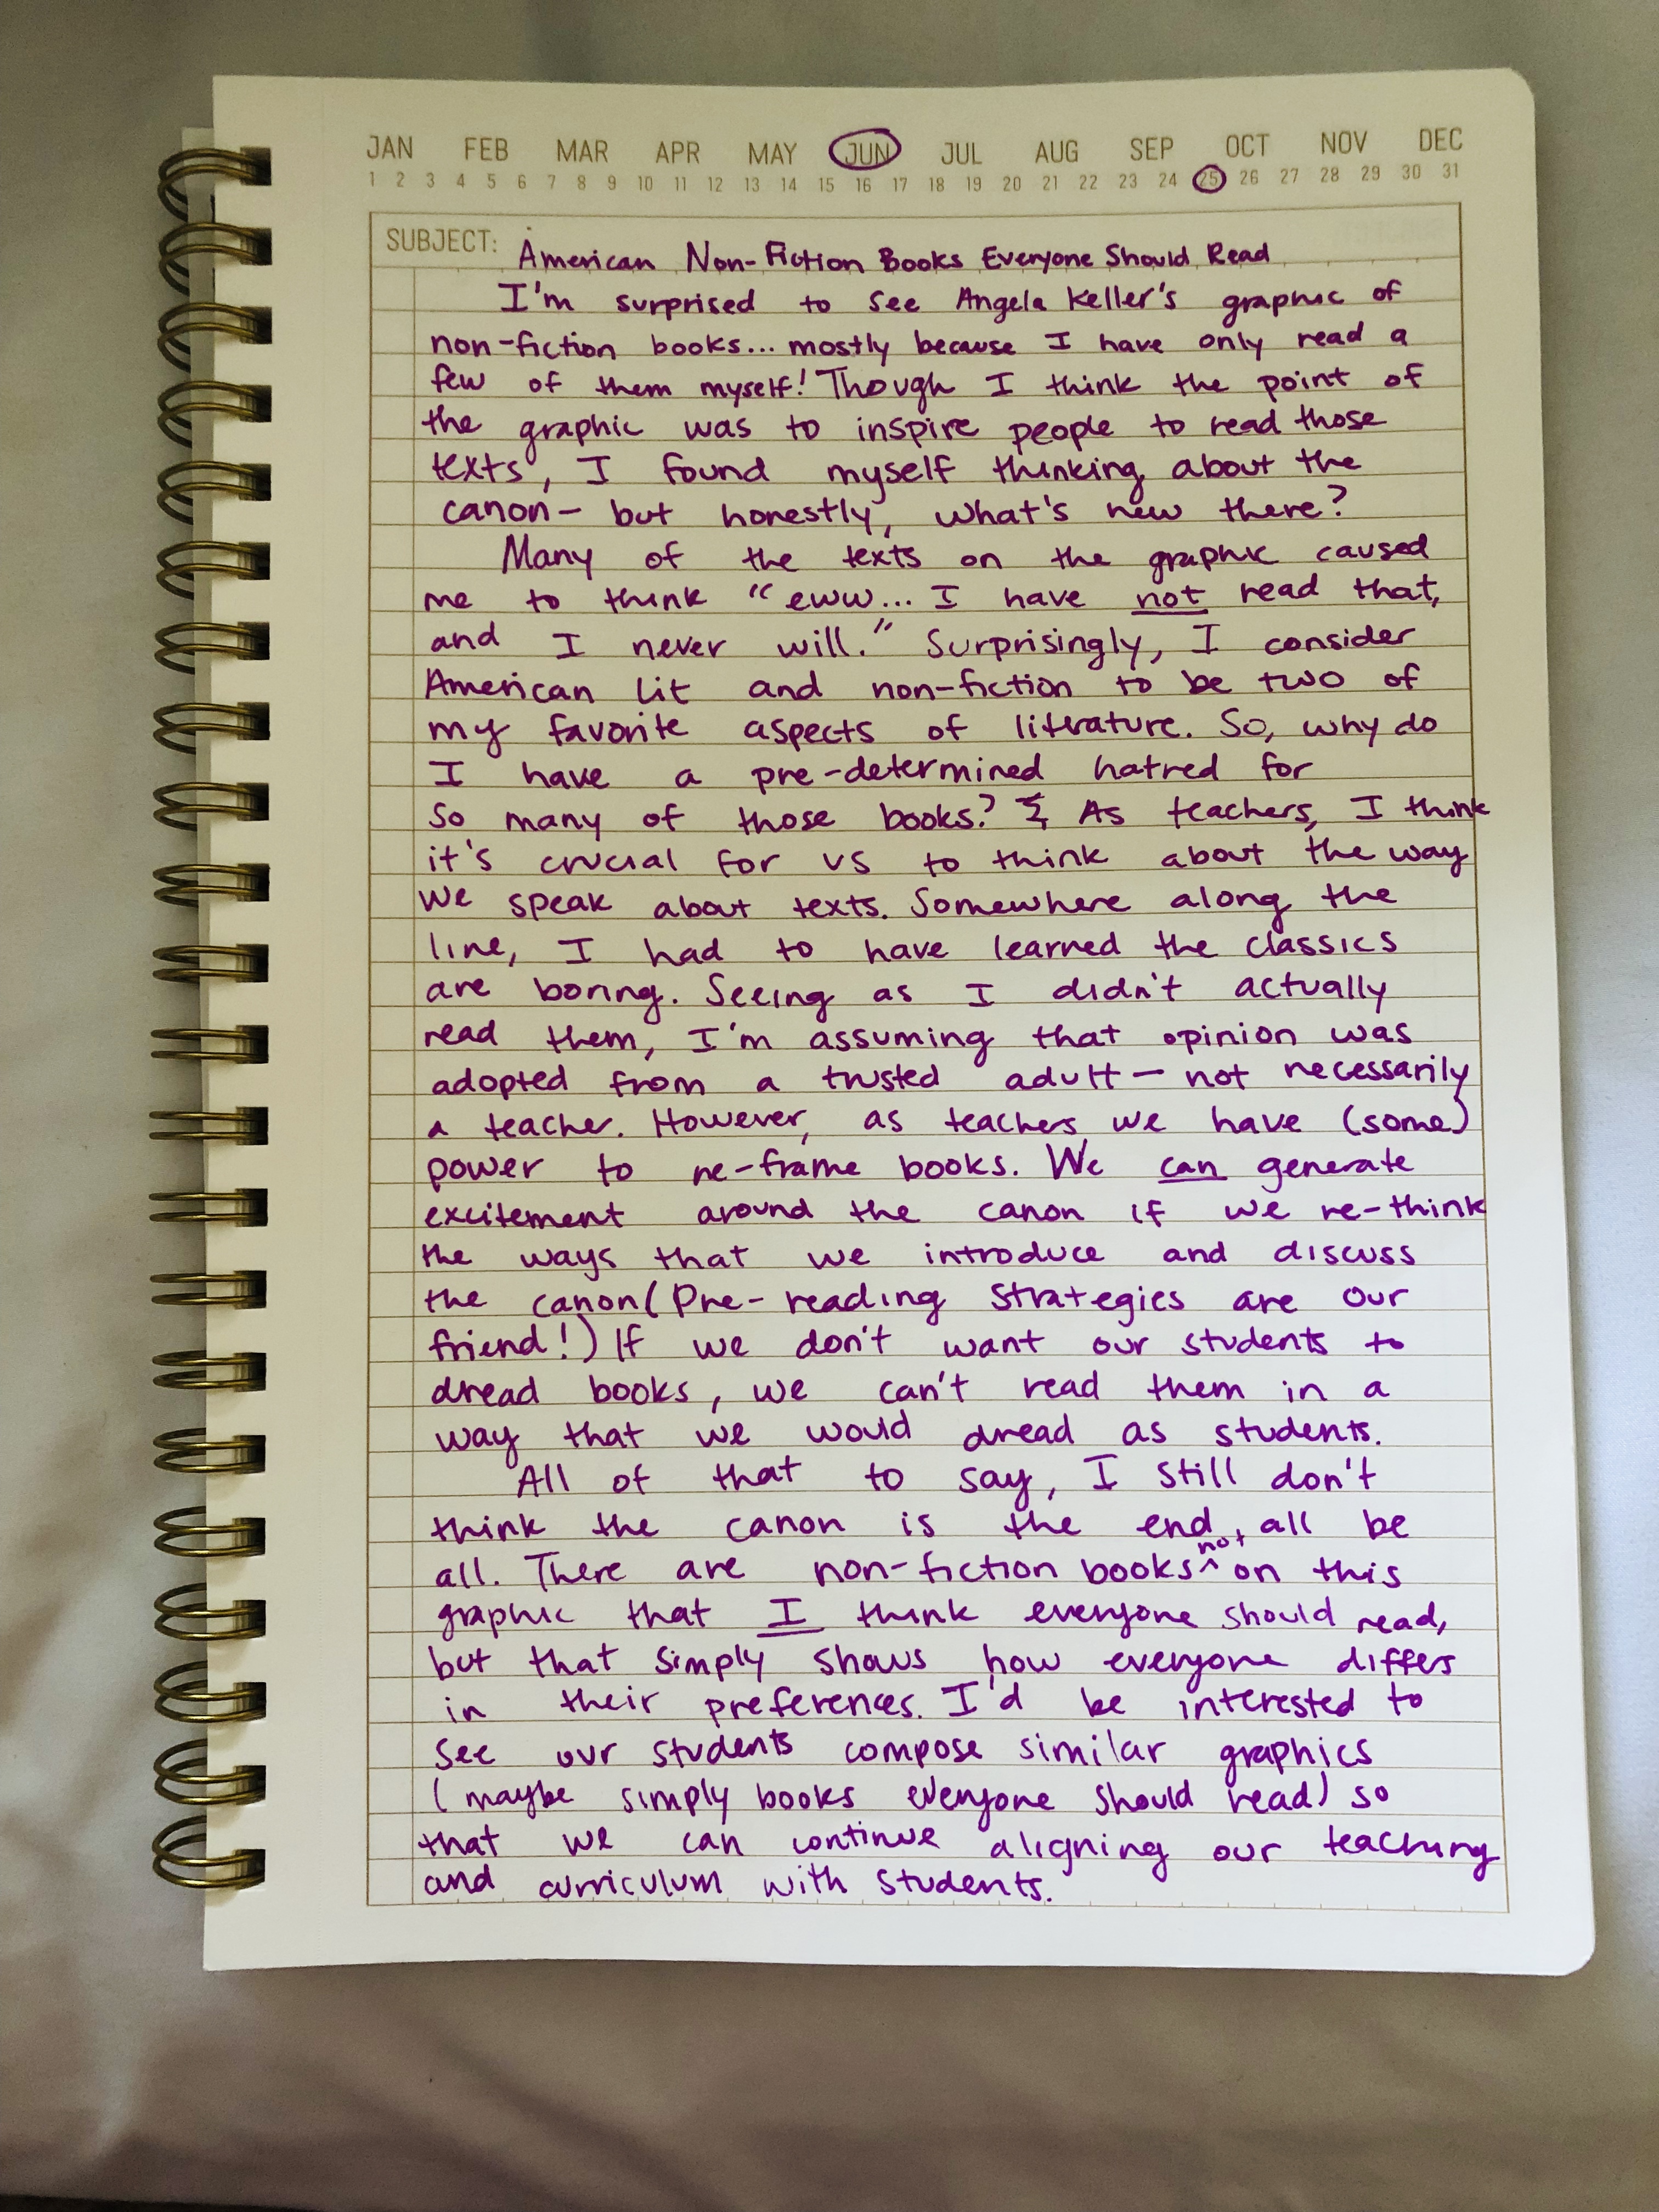 JAN FEB MAR APR MAY JUN JUL AUG SEP OCT NOV DEC
1 2 3 4 5 6 7 8 9 10 11 12 13 14 15 16 17 18 19 20 21 22 23 24 25 26 27 28 29 30 31
SUBJECT: American Non-Fiction Books Everyone Should Read
I'm surprised to see Angela Keller's graphic of
non-fiction books... mostly because I have only read a
few of them myself! Though I think the point of
the graphic was to inspire people to read those
texts, I found myself thinking about the
canon- but honestly, what's new there?
Many of the texts on the graphic caused
me to think "eww... I have not read that,
and I never will." Surprisingly, I consider
American lit and non-fiction to be two of
my favorite aspects of literature. So, why do
I have a pre-determined hatred for
so many of those books? As teachers, I think
it's crucial for us to think about the way
we speak about texts. Somewhere along the
line, I had to have learned the classics
are boring. Seeing as I didn't actually
read them, I'm assuming that opinion was
adopted from a trusted adult - not necessarily
a teacher. However, as teachers we have (some)
power to re-frame books. We can generate
excitement around the canon if we re-think
the ways that we introduce and discuss
the canon (Pre-reading strategies are our
friend!) If we don't want our students to
dread books, we can't read them in a
way that we would dread as students.
All of that to say, I still don't
think the canon is the end, all be
all. There are non-fiction books ^not on this
graphic that I think everyone should read,
but that simply shows how everyone differs
in their preferences. I'd be interested to
see our students compose similar graphics
(maybe simply books everyone should read) so
that we can continue aligning our teaching
and curriculum with students.